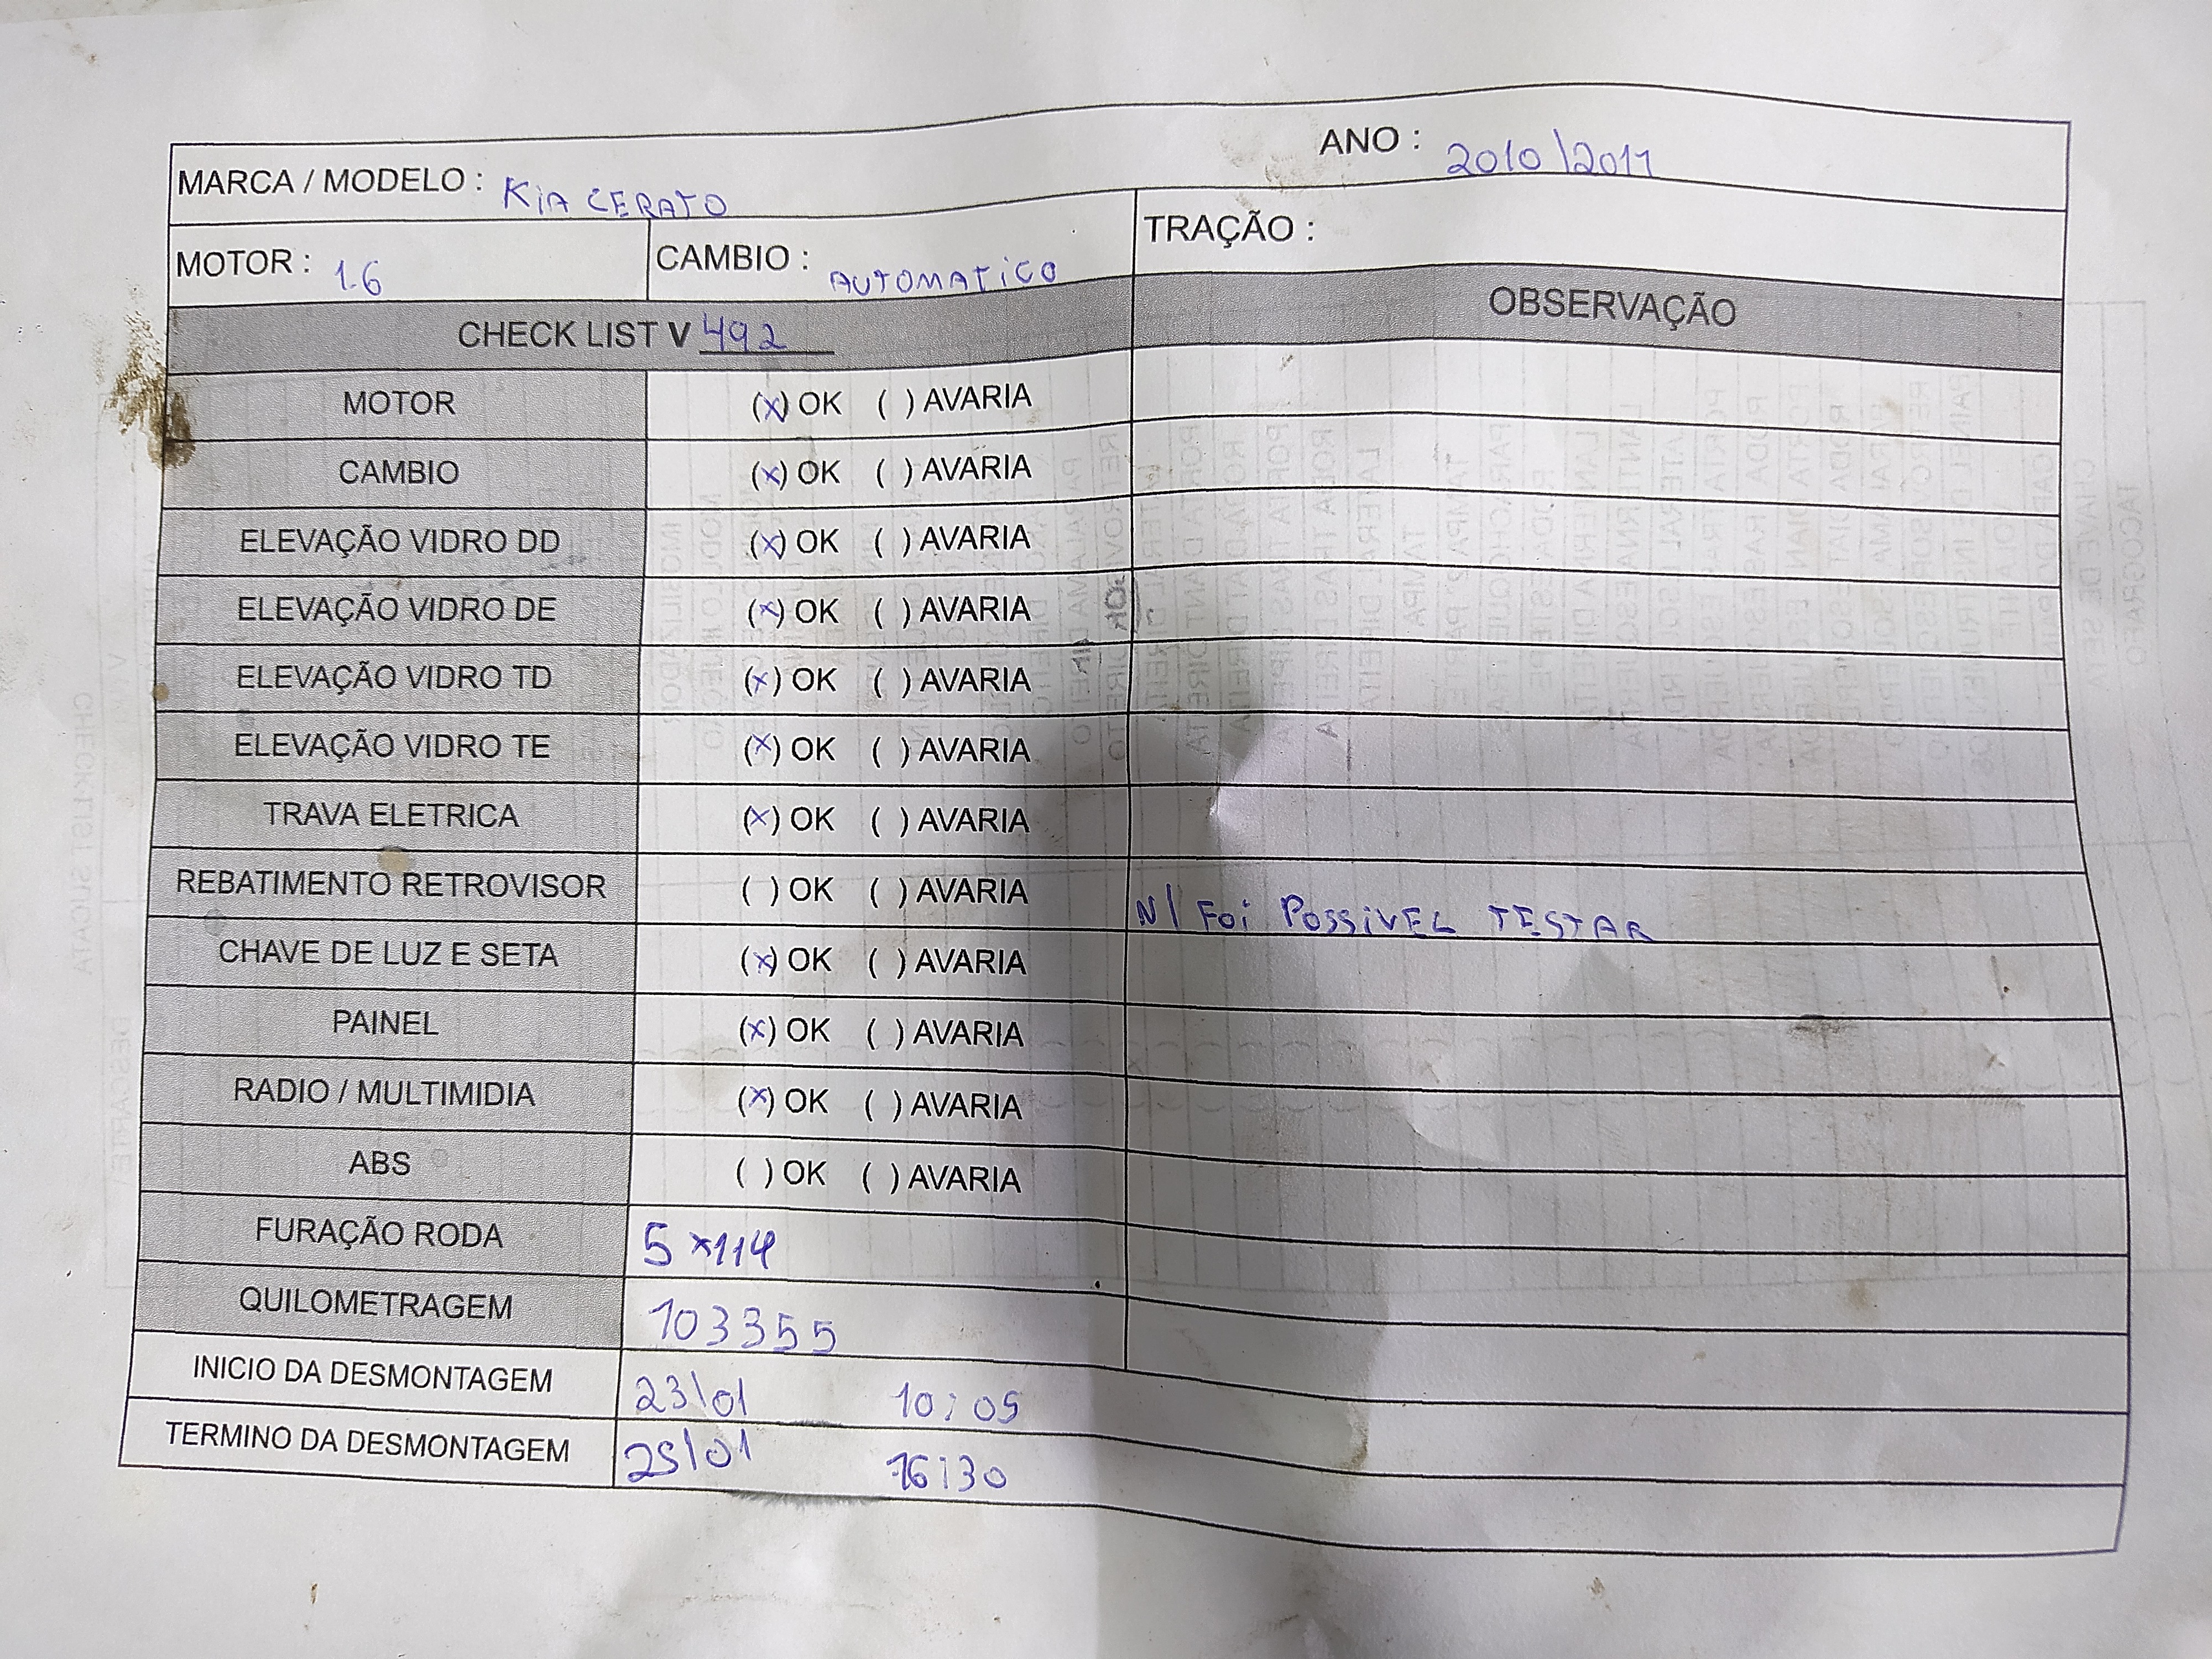 MARCA / MODELO : KiA CERATO ANO : 2010 \2011
MOTOR : 1.6 CAMBIO : AUTOMATiCO TRAÇÃO :
CHECK LIST V 492 OBSERVAÇÃO
MOTOR (x) OK ( ) AVARIA
CAMBIO (x) OK ( ) AVARIA
ELEVAÇÃO VIDRO DD (x) OK ( ) AVARIA
ELEVAÇÃO VIDRO DE (x) OK ( ) AVARIA
ELEVAÇÃO VIDRO TD (x) OK ( ) AVARIA
ELEVAÇÃO VIDRO TE (x) OK ( ) AVARIA
TRAVA ELETRICA (x) OK ( ) AVARIA
REBATIMENTO RETROVISOR ( ) OK ( ) AVARIA N/ Foi PossiVEL TESTAR
CHAVE DE LUZ E SETA (x) OK ( ) AVARIA
PAINEL (x) OK ( ) AVARIA
RADIO / MULTIMIDIA (x) OK ( ) AVARIA
ABS ( ) OK ( ) AVARIA
FURAÇÃO RODA 5 x114
QUILOMETRAGEM 103355
INICIO DA DESMONTAGEM 23\01 10:05
TERMINO DA DESMONTAGEM 25\01 16:30